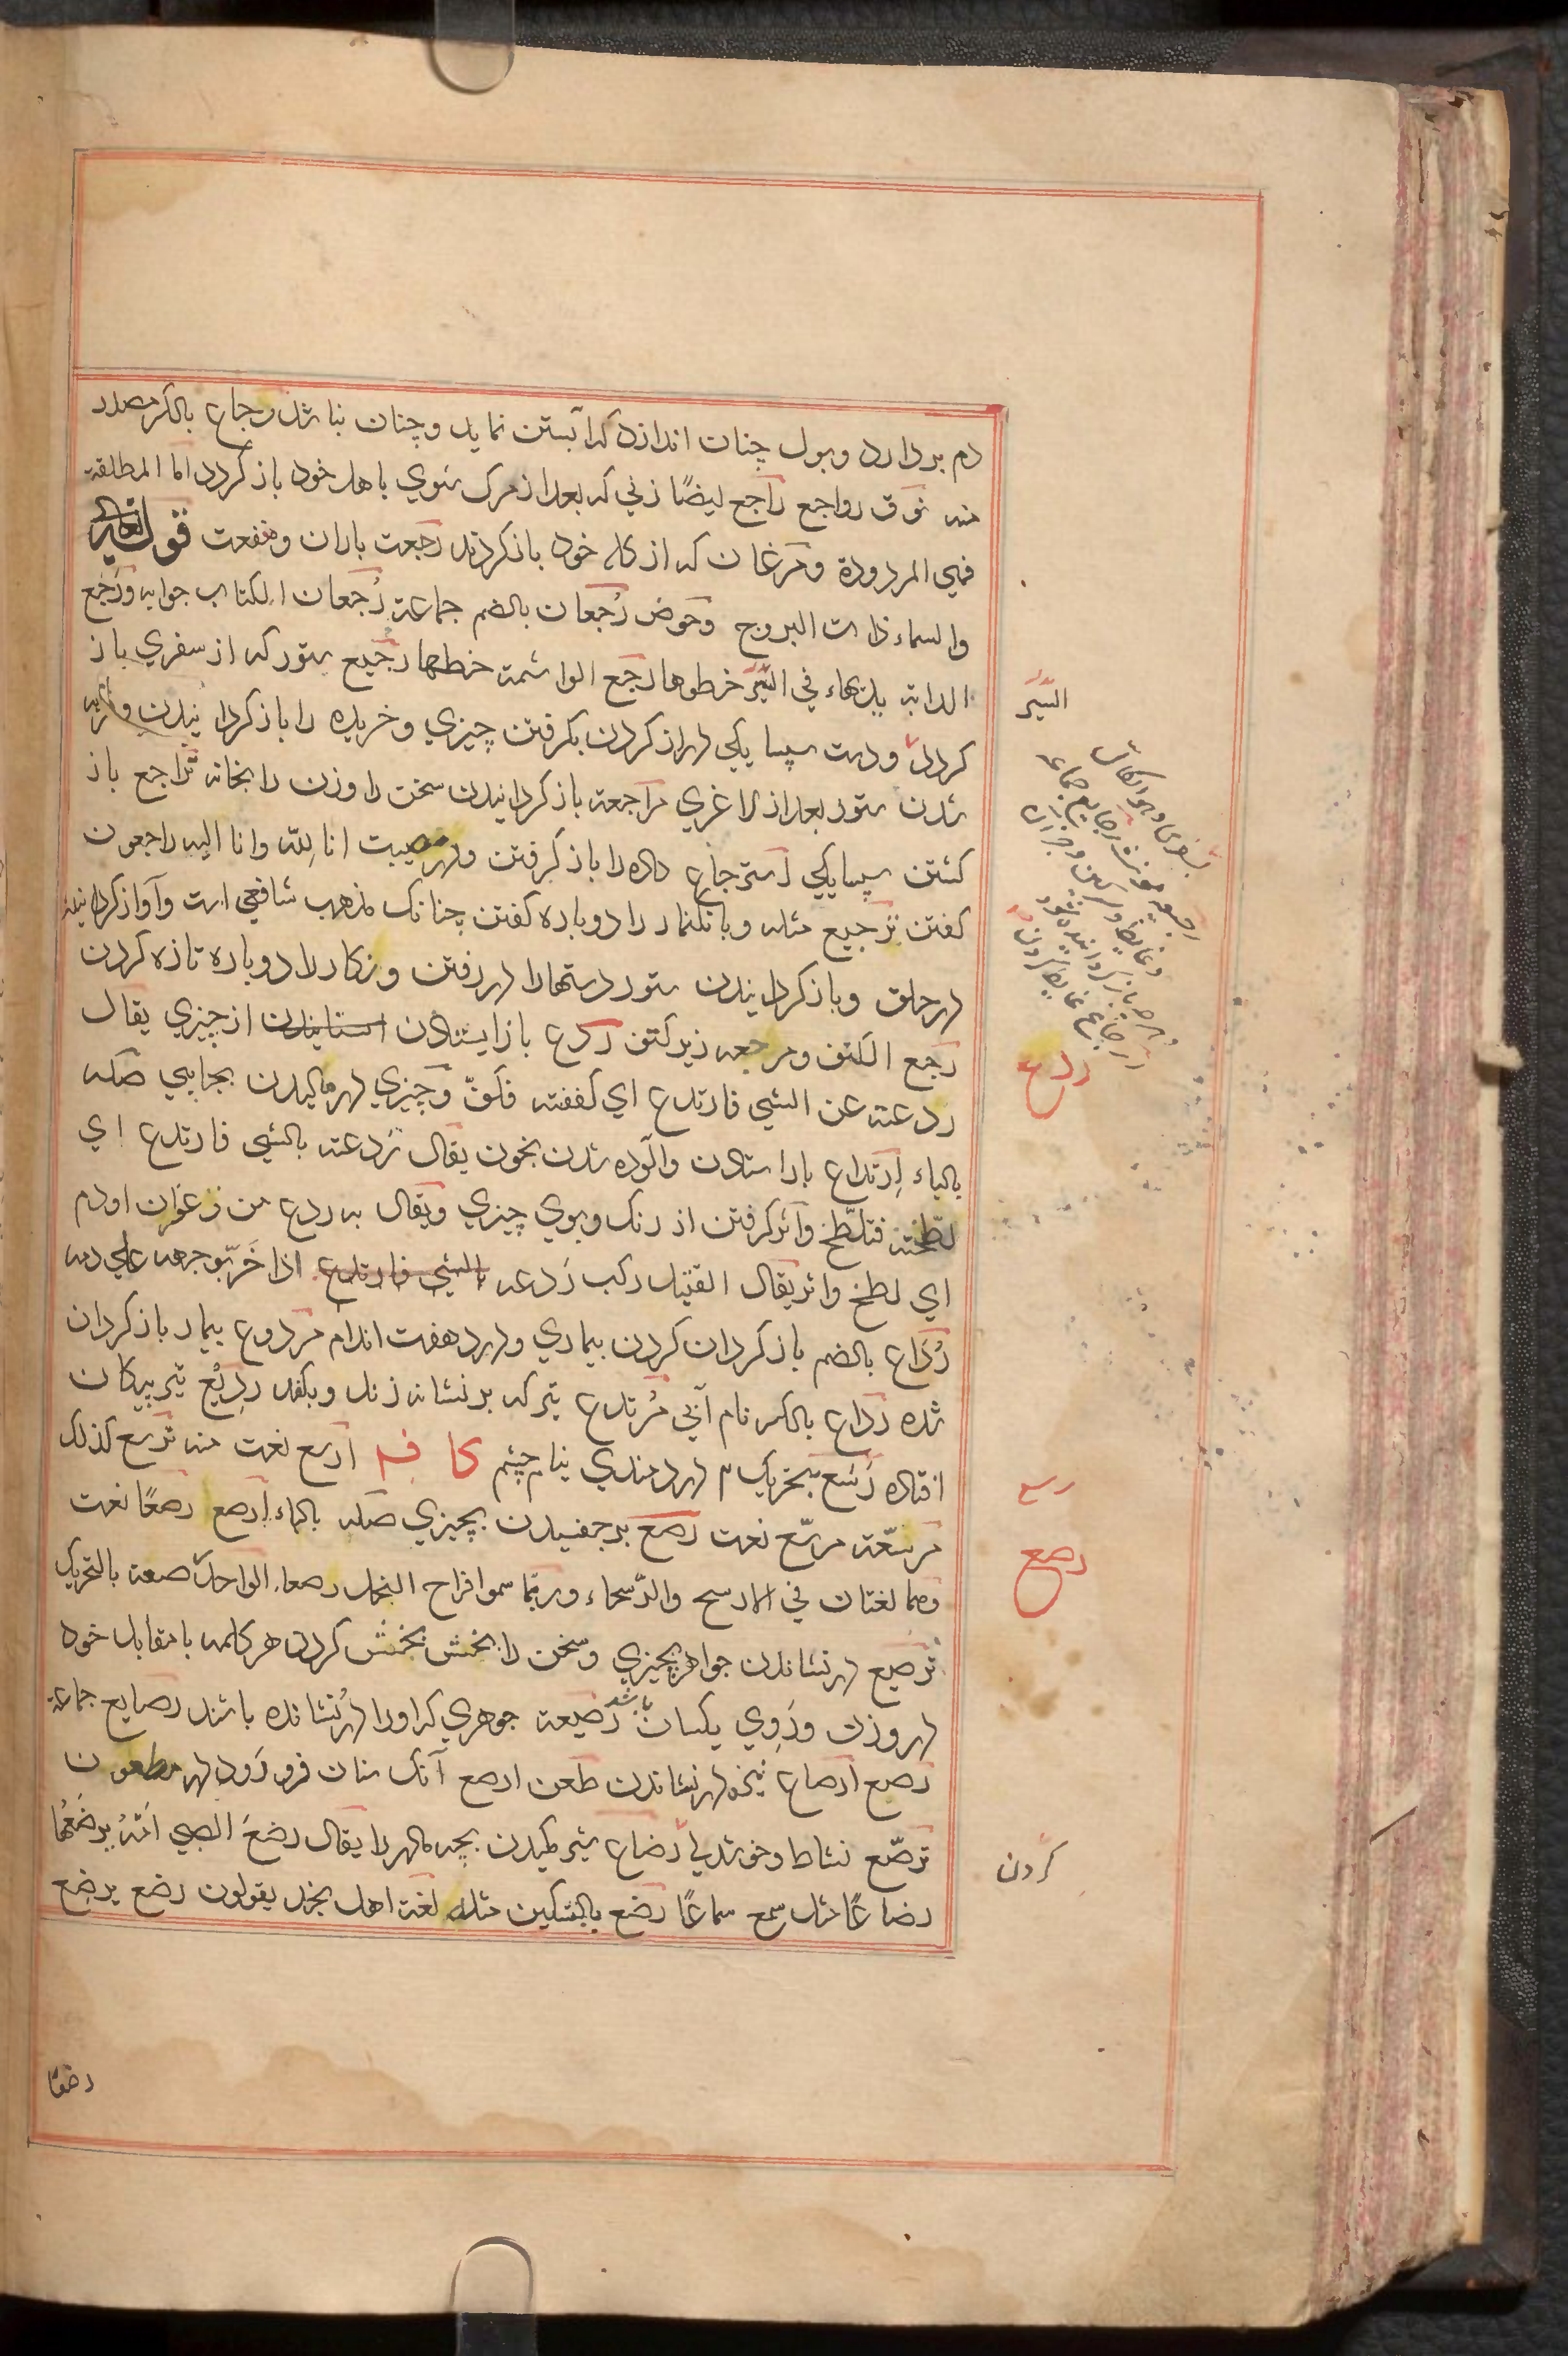 دم بردارد وبول چنان اندازد که آبستن نماید وچنان نباشد رجاع بالکسر مصدر
منه نوق رواجع راجع ایضًا زنی که بعد از مرک شوی باهل خود باز کردد اما المطلقه
فهی المردودة ومرغان که از کاه خود باز کردند رجعت باران ومنفعت قوله تعالی
والسماء ذات البروج وحوض رجعان بالضم جماعة رجعان الکتاب جوابه ورجع
الدابة یدیها فی السَّیر خطوها رجع الواشمة خطها رجیع ستور که از سفری باز
کردد ودست سپسایکی دراز کردن بکرفتن چیزی وخریده را باز کردانیدن
شدن ستور بعد از لاغری مراجعة باز کردانیدن سخن را وزن را بخانه تراجع باز
کشتن سپسایکی استرجاع داده را باز کرفتن ودر مصیبت انا لله وانا الیه راجعون
کفتن ترجیع مثله وبانکنماز را دوباره کفتن چنانک مذهب شافعی است وآواز کردانیدن
در حلق وباز کردانیدن ستور دستها را در رفتن ونکار را دوباره تازه کردن
رجع الکتف ومرجعه زیر کتف ردع باز ایستادن استانیدن از چیزی یقال
ردعته عن الشی فارتدع ای کففته فکفّ وچیزی در مالیدن بجایی صله
بالیاء اِرتداع باز استادن وآلوده شدن بخون یقال رَدعته بالشی فارتدع ای
لطّخته فتلطّخ واثر کرفتن از رنک وبوی چیزی ویقال به ردع من زعفران او دم
ای لطخ واثر یقال القتیل رکب رَدعه بالشی فارتدع اذا خَرّ بوجهه علی دمه
رُداع بالضم باز کردان کردن بیماری ودرد هفت اندام مردوع بیمار باز کردان
شده رداع بالکسر نام آبی مُرتدع تیر که بر نشانه زند وبکفد ردیع تیر پیکان
افتاده رَسَع بتحریک م دردمندی نیام چشم کا ف م ارسع نعت منه ترسع کذلک
مرسّعة مرسّع نعت رصع برچفسیدن بچیزی صله بالباء ارصع رصعًا نعت
وهما لغتان فی الارسح والرسحاء وربّما سموا فراح النحل رصعا الواحدة رصعة بالتحریک
ترصیع در نشاندن جواهر بچیزی وسخن را بخش بخش کردن هر کلمه با مقابل خود
در وزن ورَوی یکسان باشد رَصیعة جوهری که او را در نشانده باشند رصایع جماعة
رصع ارصاع نیزه در نشاندن طعن ارصع آنک سنان فرو رَود در مطعون
ترصّع نشاط وخوشدلی رَضاع شیر مکیدن بچه مادر را یقال رضعَ الصبی اُمّهُ یرضَعُها
رضاعًا مثل سمع سماعًا رضع بالتسکین مثله لغة اهل نجد یقولون رضع یرضِع
رضعًا
السَّیر
رجیعه مونث رجایع جماعه
ردع
رسع
رصع
کردن